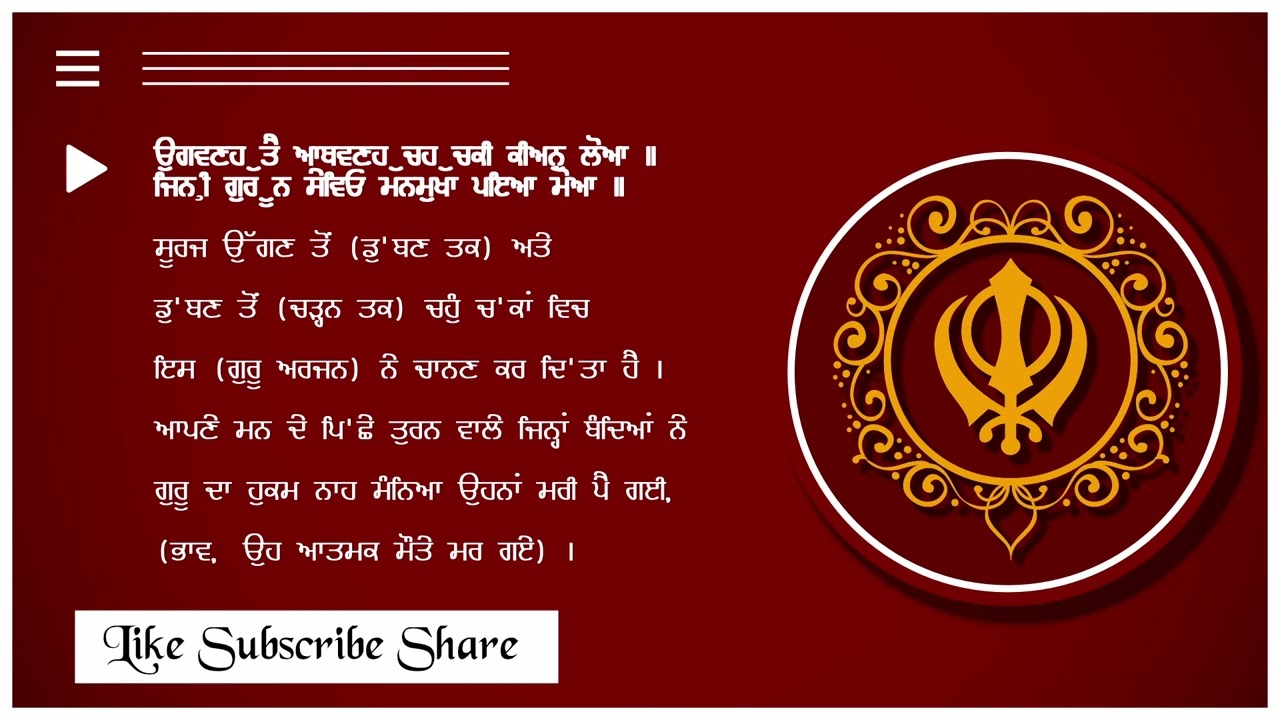 ਉਗਵਣਹੁ ਤੈ ਆਥਵਣਹੁ ਚਹੁ ਚਕੀ ਕੀਅਨੁ ਲੋਆ ॥
ਜਿਨੑੀ ਗੁਰੂ ਨ ਸੇਵਿਓ ਮਨਮੁਖਾ ਪਇਆ ਮੋਆ ॥
ਸੂਰਜ ਉੱਗਣ ਤੋਂ (ਡੁ'ਬਣ ਤਕ) ਅਤੇ
ਡੁ'ਬਣ ਤੋਂ (ਚੜ੍ਹਨ ਤਕ) ਚਹੁੰ ਚ'ਕਾਂ ਵਿਚ
ਇਸ (ਗੁਰੂ ਅਰਜਨ) ਨੇ ਚਾਨਣ ਕਰ ਦਿ'ਤਾ ਹੈ ।
ਆਪਣੇ ਮਨ ਦੇ ਪਿ'ਛੇ ਤੁਰਨ ਵਾਲੇ ਜਿਨ੍ਹਾਂ ਬੰਦਿਆਂ ਨੇ
ਗੁਰੂ ਦਾ ਹੁਕਮ ਨਾਹ ਮੰਨਿਆ ਉਹਨਾਂ ਮਰੀ ਪੈ ਗਈ,
(ਭਾਵ, ਉਹ ਆਤਮਕ ਮੌਤੇ ਮਰ ਗਏ) ।
Like Subscribe Share